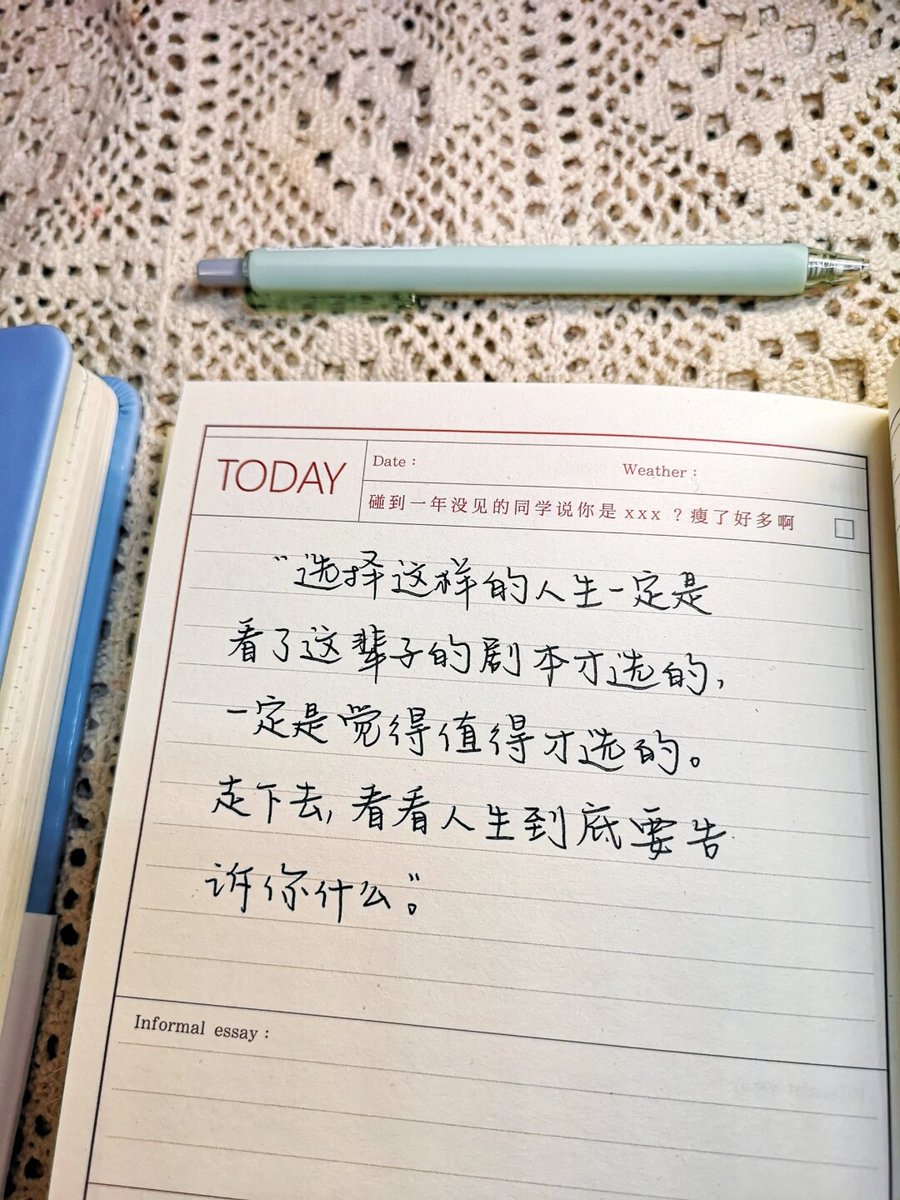 TODAY
Date：
Weather：
碰到一年没见的同学说你是 xxx ？瘦了好多啊
“选择这样的人生一定是
看了这辈子的剧本才选的，
一定是觉得值得才选的。
走下去，看看人生到底要告
诉你什么”。
Informal essay：